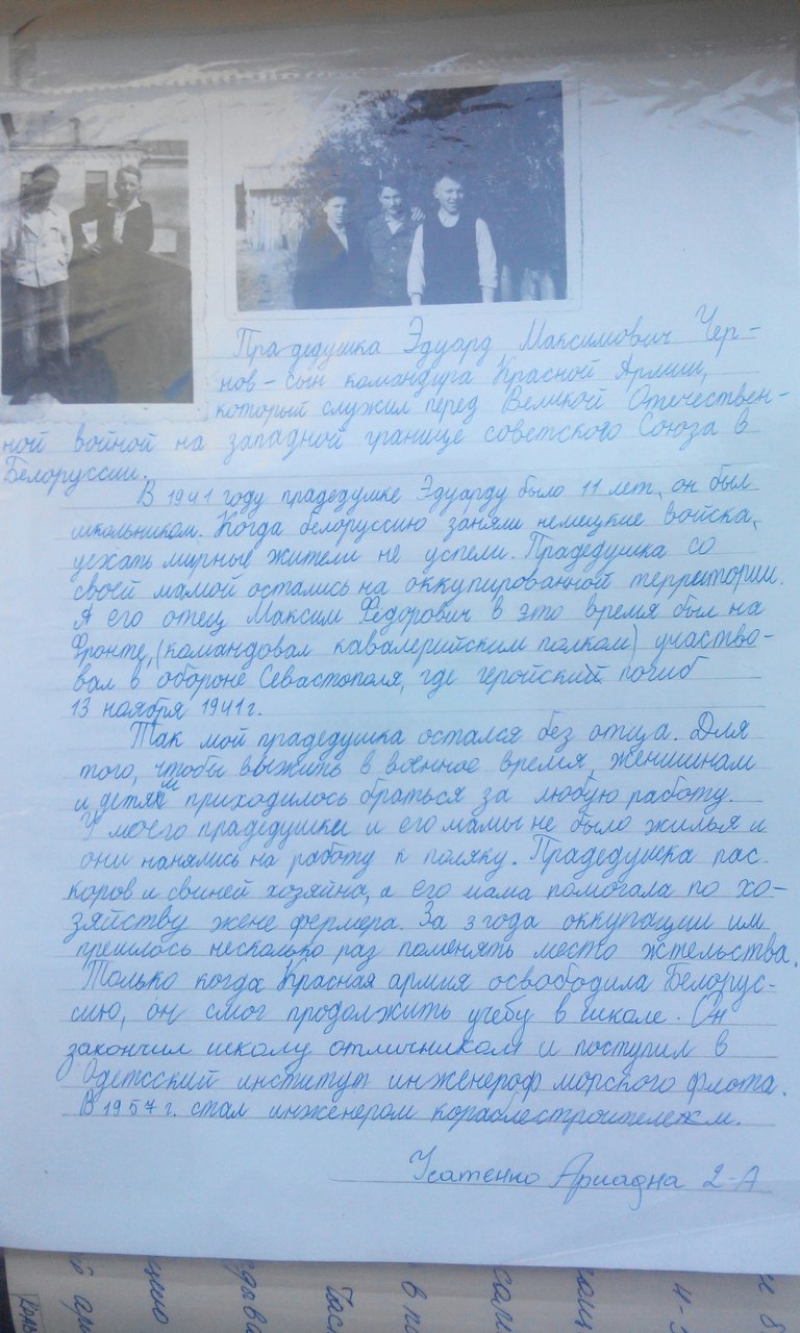 Прадедушка Эдуард Максимович Чер-
нов - сын командира Красной Армии,
который служил перед Великой Отечествен-
ной войной на западной границе советского Союза в
Белоруссии.
В 1941 году прадедушке Эдуарду было 11 лет, он был
школьником. Когда белоруссию заняли немецкие войска,
уехать мирные жители не успели. Прадедушка со
своей мамой остались на оккупированной территории.
А его отец Максим Фёдорович в это время был на
Фронте, (командовал кавалерийским полком) участво-
вал в обороне Севастополя, где геройский погиб
13 ноября 1941 г.
Так мой прадедушка остался без отца. Для
того, чтобы выжить в военное время, женщинам
и детям приходилось браться за любую работу.
У моего прадедушки и его мамы не было жилья и
они нанялись на работу к поляку. Прадедушка пас
коров и свиней хозяйна, а его мама помогала по хо-
зяйству жене фермера. За 3 года оккупации им
пришлось несколько раз поменять место жтельства.
Только когда Красная армия освободила Белорус-
сию, он смог продолжить учебу в школе. Он
закончил школу отличником и поступил в
Одетсский институт инженероф морского флота.
В 1957 г. стал инженером кораблестроителем.
Усатенко Ариадна 2-А